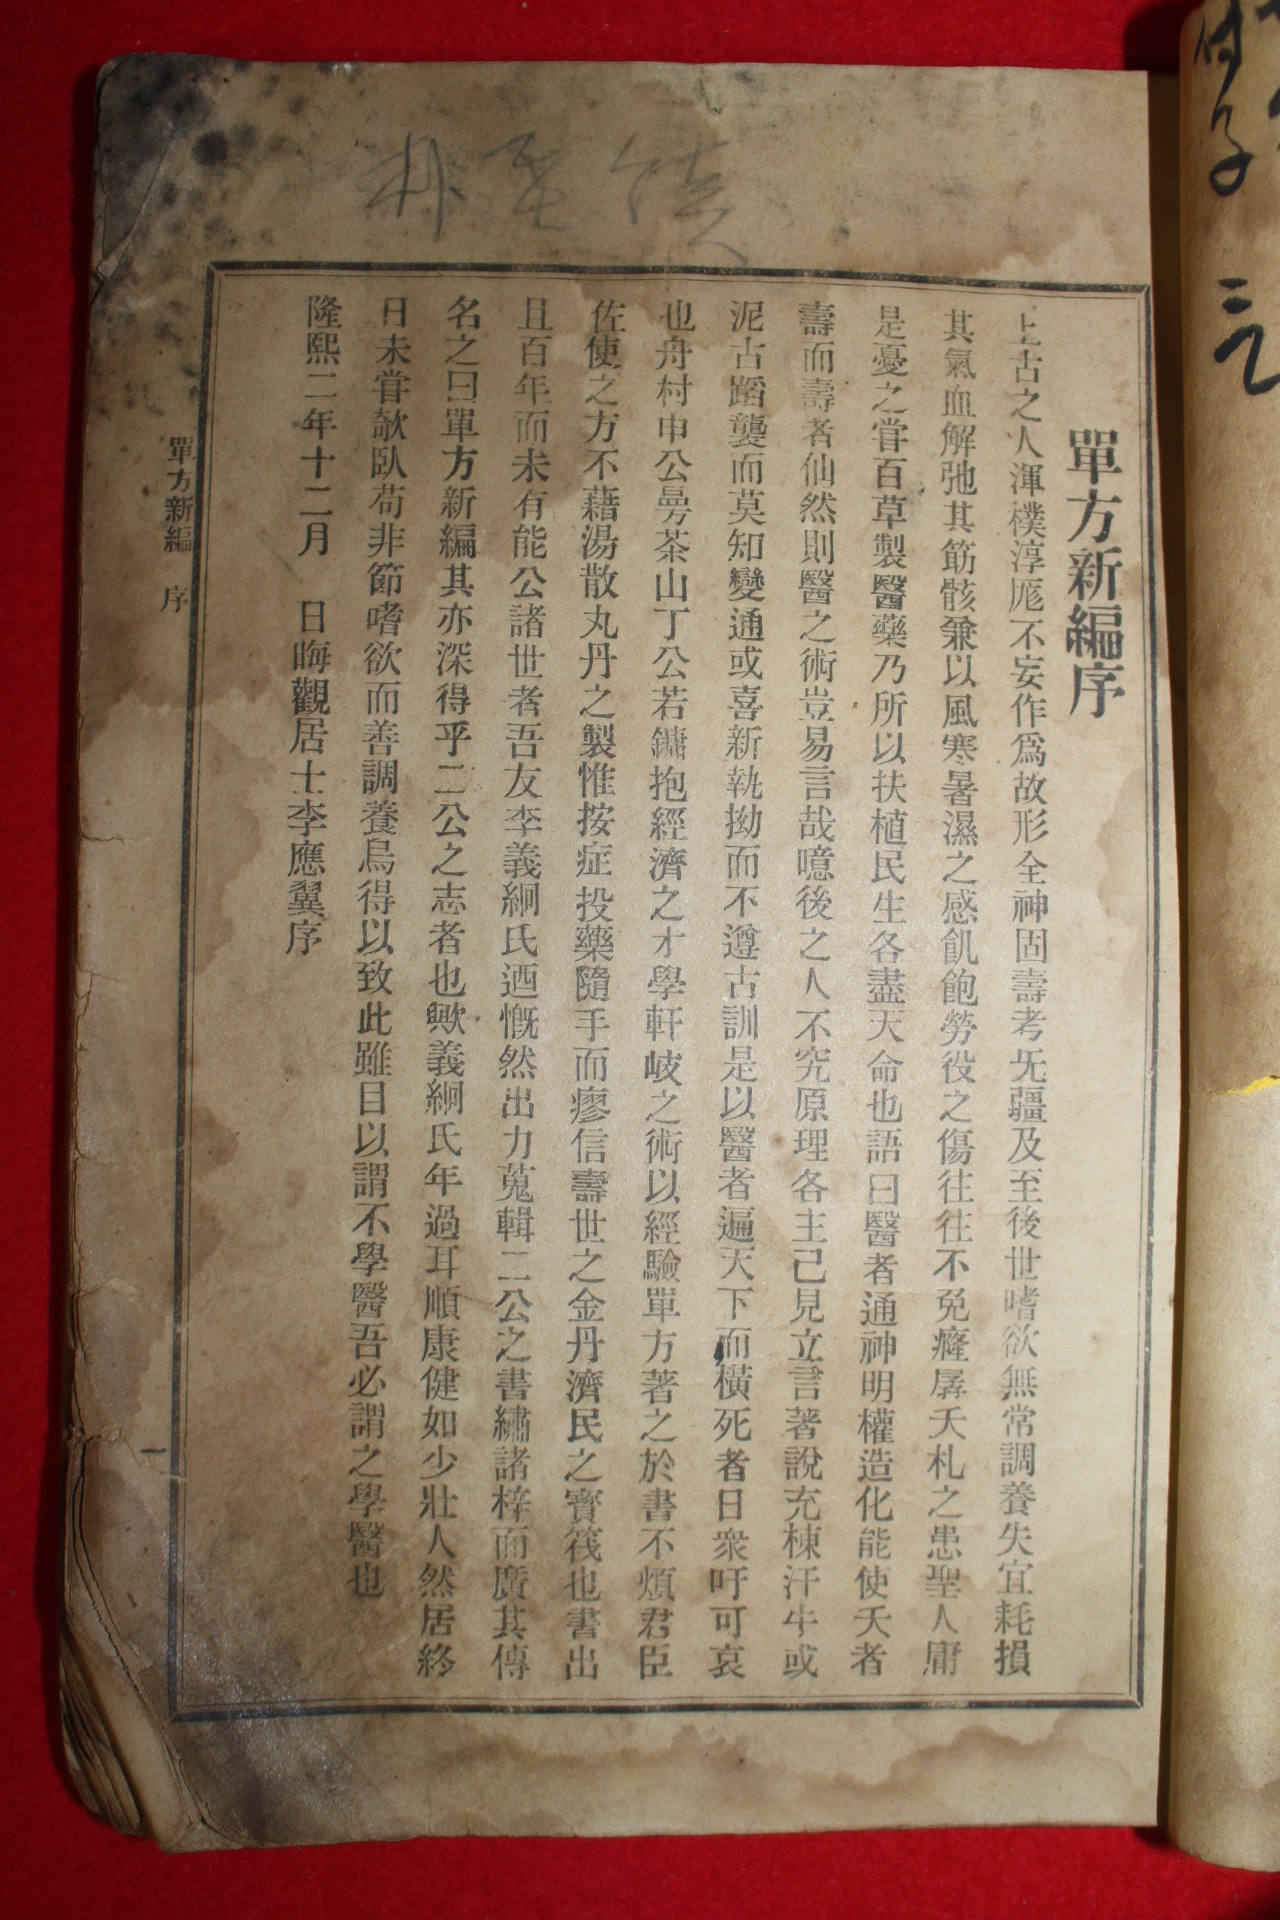 單方新編序
上古之人渾樸淳厖不妄作爲故形全神固壽考旡疆及至後世嗜欲無常調養失宜耗損
其氣血解弛其筋骸兼以風寒暑濕之感飢飽勞役之傷往往不免癃孱夭札之患聖人庸
是憂之嘗百草製醫藥乃所以扶植民生各盡天命也語曰醫者通神明權造化能使夭者
壽而壽者仙然則醫之術豈易言哉噫後之人不究原理各主己見立言著說充棟汗牛或
泥古蹈襲而莫知變通或喜新執拗而不遵古訓是以醫者遍天下而橫死者日衆吁可哀
也舟村申公曼茶山丁公若鏞抱經濟之才學軒岐之術以經驗單方著之於書不煩君臣
佐使之方不藉湯散丸丹之製惟按症投藥隨手而瘳信壽世之金丹濟民之寶筏也書出
且百年而未有能公諸世者吾友李義絅氏迺慨然出力蒐輯二公之書繡諸梓而廣其傳
名之曰單方新編其亦深得乎二公之志者也歟義絅氏年過耳順康健如少壯人然居終
日未嘗欹臥苟非節嗜欲而善調養烏得以致此雖目以謂不學醫吾必謂之學醫也
隆熙二年十二月 日晦觀居士李應翼序
單方新編 序
一